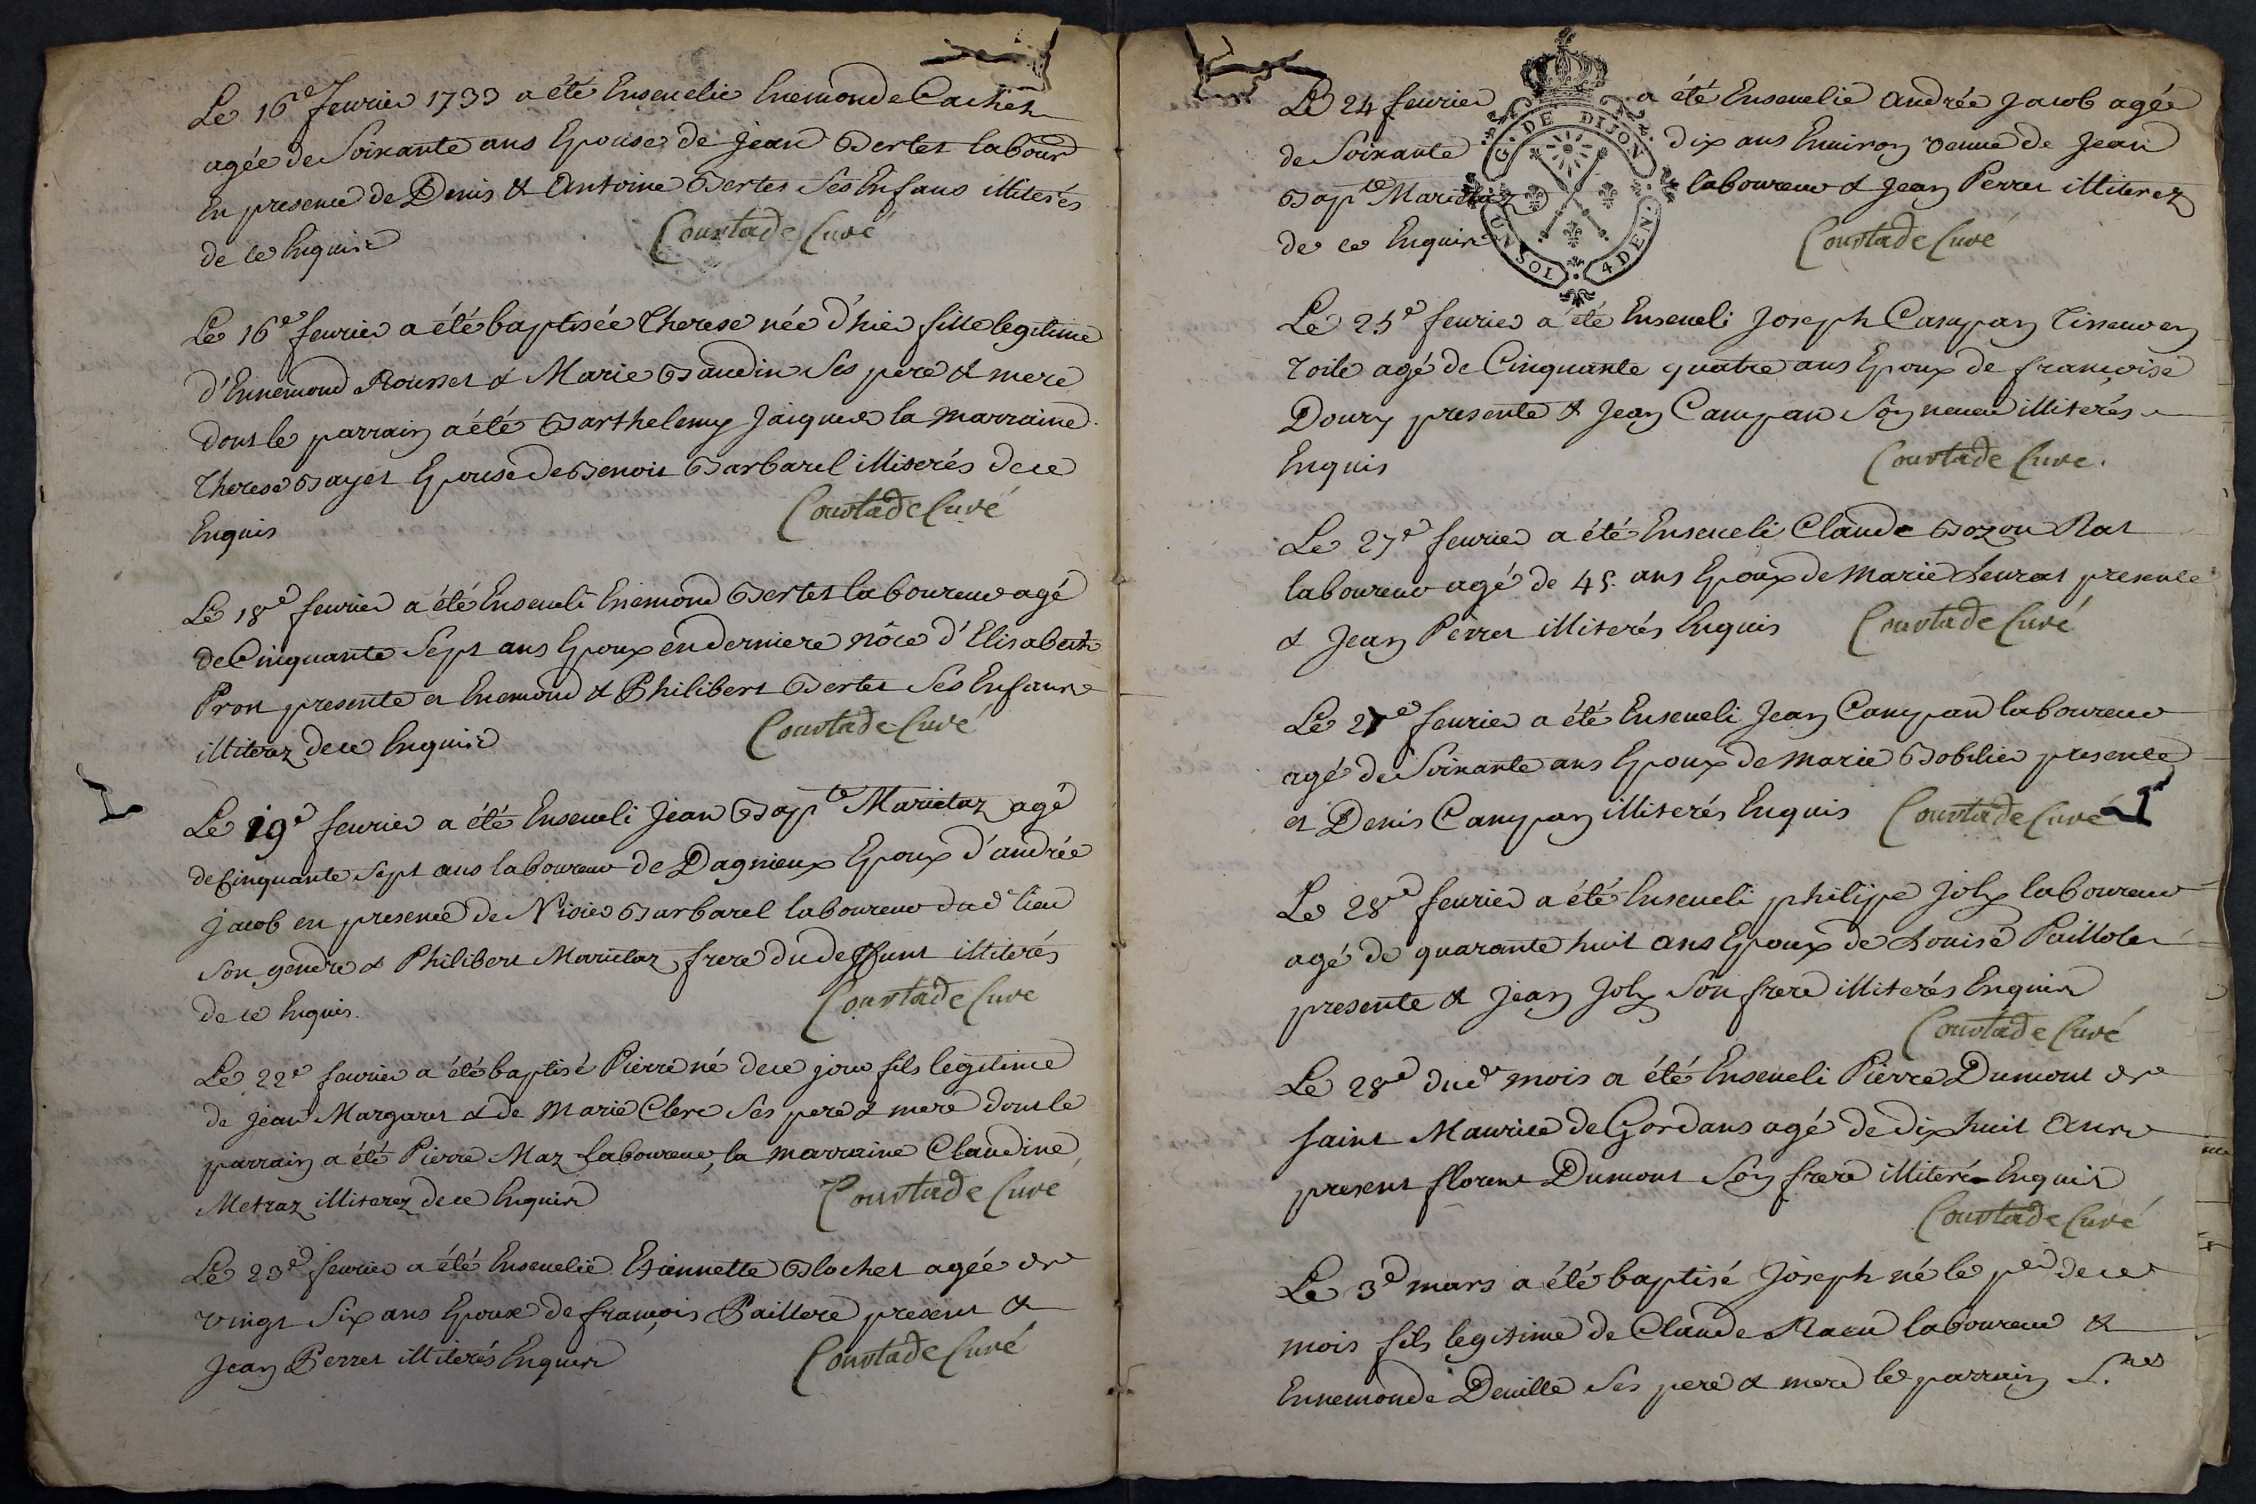 Le 16e feurier 1733 a été Enseuelie Enemonde Cachet
agée de Soixante ans Epouse de Jean Bertet labour
En presence de Denis & Antoine Bertet Ses Enfans illiterés
de ce Enquis
Courtade Curé
Le 16e feurier a été baptisée Therese née d'hier fille legitime
d'Ennemond Rousset & Marie Baudin Ses pere & mere
dont le parrain a été Barthelemy Jaique & la marraine
Therese Bayet Epouse de Benoit Barbarel illiterés de ce
Enquis
Courtade Curé
Le 18e feurier a été Enseueli Enemond Bertet laboureur agé
de Cinquante Sept ans Epoux en derniere nôce d'Elisabeth
Pron presente et Enemond & Philibert Bertet Ses Enfans
illiterez de ce Enquis
Courtade Curé
Le 19e feurier a été Enseueli Jean Bapte Marietaz agé
de Cinquante Sept ans laboureur de Dagnieux Epoux d'andrée
Jacob en presence de Nisier Barbarel laboureur dud lieu
Son gendre & Philibert Marietaz frere du deffunt illiterés
de ce Enquis.
Courtade Curé
Le 22e feurier a été baptisé Pierre né de ce jour fils legitime
de Jean Margaret & de Marie Clerc Ses pere & mere dont le
parrain a été Pierre Maz Laboureur, la marraine Claudine
Metraz illiterez de ce Enquis
Courtade Curé
Le 23e feurier a été Enseuelie Etiennette Blochet agée de
vingt Six ans Epouse de françois Paillere present &
Jean Perret illiterés Enquis
Courtade Curé
Le 24 feurier a été Enseuelie Andrée Jacob agée
de Soixante dix ans Enuiron veuue de Jean
Bapte Marietaz laboureur & Jean Perret illiterez
de ce Enquis
Courtade Curé
G. DE DIJON
UN SOL 4 DEN.
Le 25e feurier a été Enseueli Joseph Campan Tisseur en
Toile agé de Cinquante quatre ans Epoux de françoise
Doury presente & Jean Campan Son neueu illiterés
Enquis
Courtade Curé.
Le 27e feurier a été Enseueli Claude Bozon Rat
laboureur agé de 45. ans Epoux de Marie Leurat presente
& Jean Perret illiterés Enquis
Courtade Curé
Le 27e feurier a été Enseueli Jean Campan laboureur
agé de Soixante ans Epoux de Marie Bobilier presente
et Denis Campan illiterés Enquis
Courtade Curé
Le 28e feurier a été Enseueli philipe Joly laboureur
agé de quarante huit ans Epoux de Louise Paillole
presente & Jean Joly Son frere illiterés Enquis
Courtade Curé
Le 28e dud mois a été Enseueli Pierre Dumont de
Saint Maurice de Gordans agé de dix huit ans
present florent Dumont Son frere illiteré Enquis
Courtade Curé
Le 3e mars a été baptisé Joseph né le per de ce
mois fils legitime de Claude Raeu laboureur &
Ennemonde Deuille Ses pere & mere le parrain S.